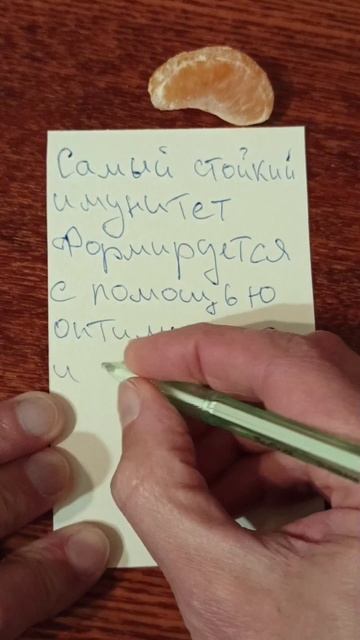 Самый стойкий
имунитет
Формируется
с помощью
и